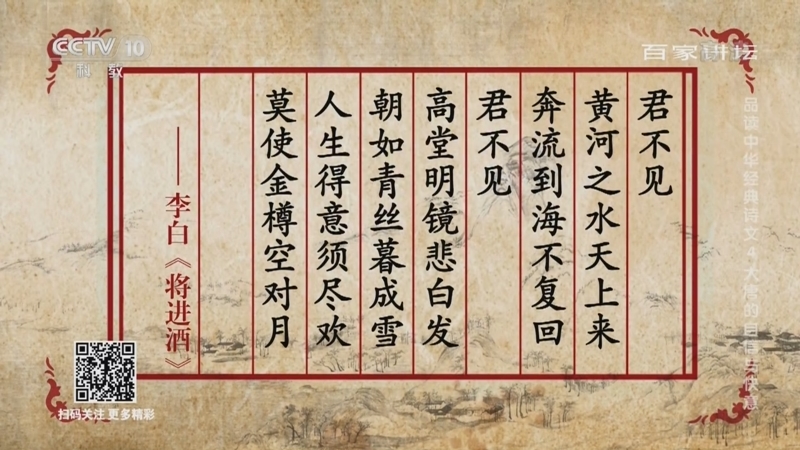 CCTV 10
科教
百家讲坛
君不见
黄河之水天上来
奔流到海不复回
君不见
高堂明镜悲白发
朝如青丝暮成雪
人生得意须尽欢
莫使金樽空对月
——李白《将进酒》
品读中华经典诗文4
扫码关注 更多精彩